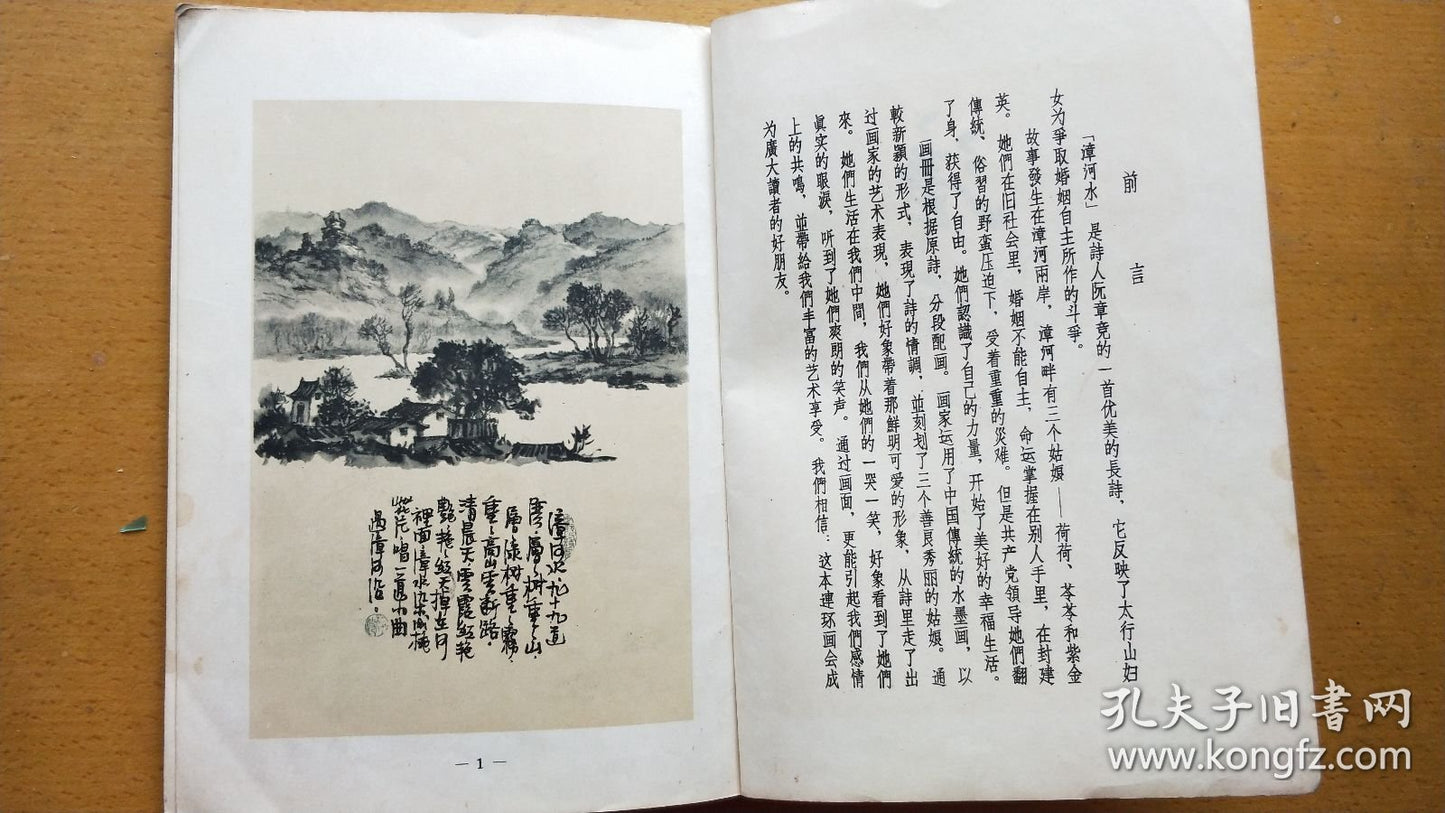 前言
「漳河水」是詩人阮章竞的一首优美的長詩，它反映了太行山妇
女为爭取婚姻自主所作的斗爭。
故事發生在漳河兩岸，漳河畔有三个姑娘——荷荷、苓苓和紫金
英。她們在旧社会里，婚姻不能自主，命运掌握在别人手里，在封建
傳統、俗習的野蛮压迫下，受着重重的災难。但是共产党領导她們翻
了身，获得了自由。她們認識了自己的力量，开始了美好的幸福生活。
画冊是根据原詩，分段配画。画家运用了中国傳統的水墨画，以
較新颖的形式，表現了詩的情調，並刻划了三个善良秀丽的姑娘。通
过画家的艺术表現，她們好象帶着那鮮明可爱的形象，从詩里走了出
來。她們生活在我們中間，我們从她們的一哭一笑，好象看到了她們
眞实的眼淚，听到了她們爽朗的笑声。通过画面，更能引起我們感情
上的共鳴，並帶給我們丰富的艺术享受。我們相信：这本連环画会成
为廣大讀者的好朋友。
漳河水九十九道
湾，層〻树重〻山，
層〻綠树重〻霧，
重〻高山雲断路。
清晨天雲霞紅艳
艷，艳〻紅天掉在河
裡面漳水染成桃
花片唱一道小曲
過漳河沿。
— 1 —
孔夫子旧書网
www.kongfz.com